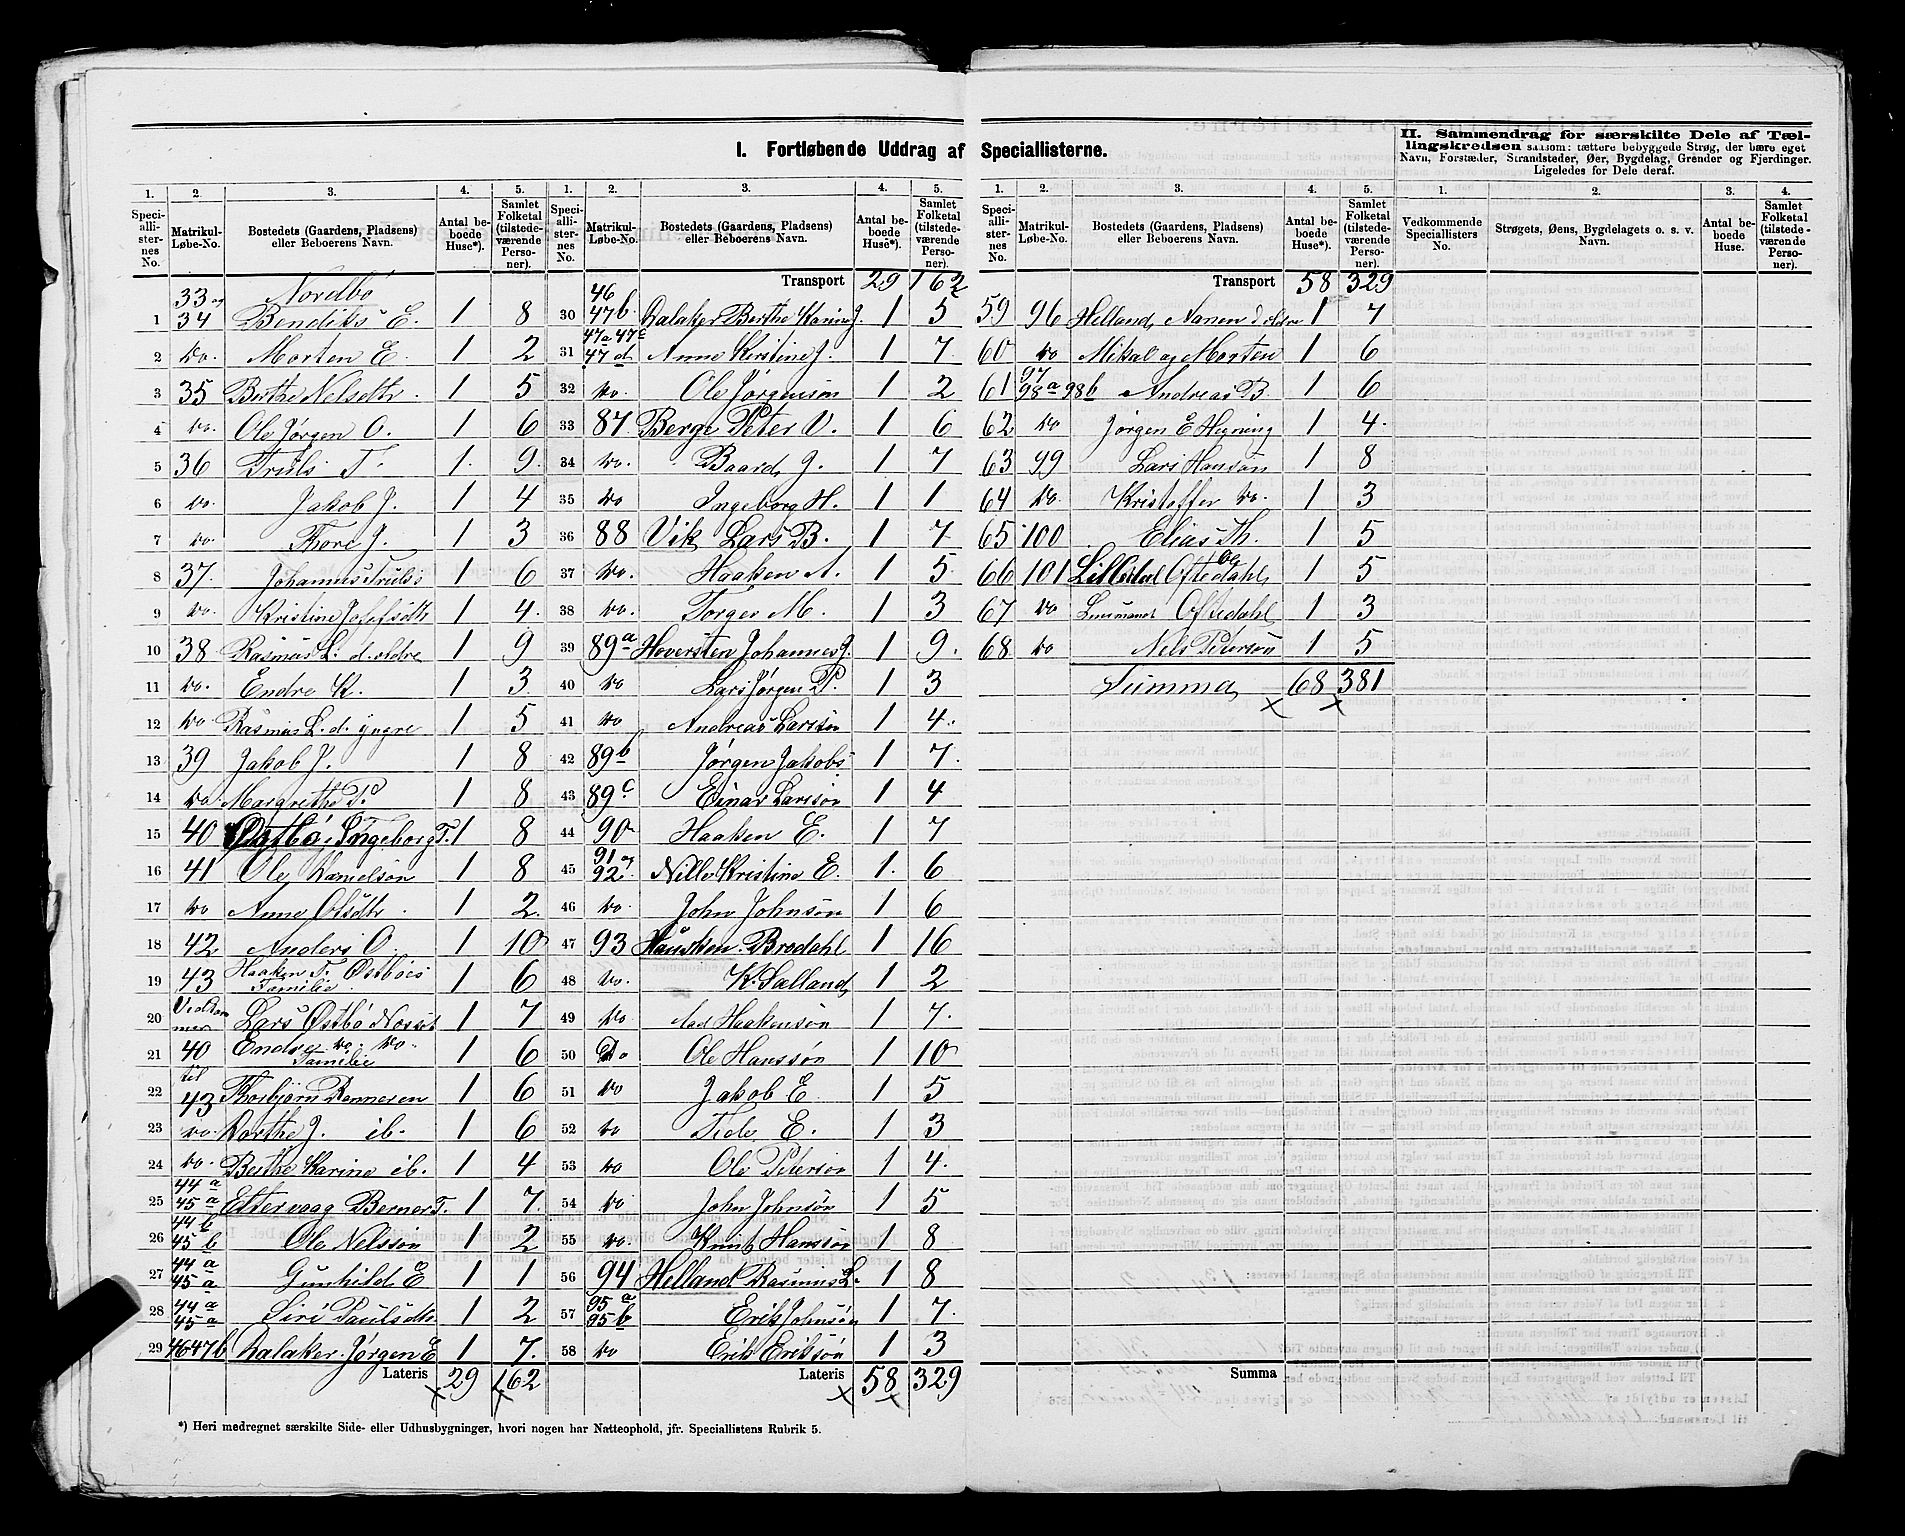 I. Fortløbende Uddrag af Speciallisterne.
II. Sammendrag for særskilte Dele af Tællingskredsen saasom: tættere bebyggede Strøg, der bære eget
Navn, Forstæder, Strandsteder, Øer, Bygdelag, Grender og Fjerdinger.
Ligeledes for Dele deraf.
1. 2. 3. 4. 5. 1. 2. 3. 4. 5. 1. 2. 3. 4. 5. 1. 2. 3. 4.
Speciallisternes No. Matrikul-Løbe-No. Bostedets (Gaardens, Pladsens) eller Beboerens Navn. Antal beboede Huse*). Samlet Folketal (tilstedeværende Personer).
Speciallisternes No. Matrikul-Løbe-No. Bostedets (Gaardens, Pladsens) eller Beboerens Navn. Antal beboede Huse*). Samlet Folketal (tilstedeværende Personer).
Speciallisternes No. Matrikul-Løbe-No. Bostedets (Gaardens, Pladsens) eller Beboerens Navn. Antal beboede Huse*). Samlet Folketal (tilstedeværende Personer).
Vedkommende Speciallisters No. Strøgets, Øens, Bygdelagets o. s. v. Navn. Antal beboede Huse. Samlet Folketal (tilstedeværende Personer).
Nordbø
1 33 og 34 Bendiks E. 1 8
2 do. Morten E. 1 2
3 35 Berthe Nelsdtr. 1 5
4 do. Ole Jørgen O. 1 6
5 36 Truls T. 1 9
6 do. Jakob J. 1 4
7 do. Thore J. 1 3
8 37 Johannes Truls's 1 6
9 do. Kristine Josefsdtr 1 4
10 38 Rasmus L. d. eldre 1 9
11 do. Endre K. 1 3
12 do Rasmus L. d. yngre 1 5
13 39 Jakob J. 1 8
14 do Margrethe P. 1 8
15 40 Østbø, Ingeborg T. 1 8
16 41 Ole Danielson 1 8
17 do Anne Olsdtr. 1 2
18 42 Anders O. 1 10
19 43 Haaken T. Østbøes Familie 1 6
20 Vedkommer Lars Østbø 1 7
21 40 Endre do. do. Familie 1 6
22 til 43 Thorbjørn Rennesen 1 6
23 do. Dorthe J. ib. 1 6
24 do. Berthe Karine ib. 1 4
25 44 a 45 a Eltervaag Berner T. 1 7
26 44 b 45 b Ole Nelsson 1 2
27 44 a 45 a Gunhild E 1 1
28 44 a 45 a Siri Paulsdtr. 1 2
29 46 47 b Dalaker Jørgen E 1 7
Lateris 29 162
Transport 29 162
30 46 47 b. Dalaker Berthe Karine J. 1 5
31 47 a 47 c 47 d Anne Kirstine J. 1 7
32 do. Ole Jørgenson 1 2
33 87 Berge Peter V. 1 6
34 do. Baard J. 1 7
35 do Ingeborg H. 1 1
36 88 Vik Lars B. 1 7
37 do. Haaken A. 1 5
38 do. Torger M. 1 3
39 89 a Hoversten Johannes J. 1 9
40 do Lars Jørgen P. 1 3
41 do Andreas Larsson 1 4
42 89 b Jørgen Jakobs 1 7
43 89 c Einar Larsson 1 4
44 90 Haaken E. 1 7
45 91 og 92 Nille Kristine E. 1 6
46 do. John Johnson 1 6
47 93 Hausken Bredahl 1 16
48 do. K. Sælland 1 2
49 do Aad Haakenson 1 7
50 do Ole Hansson 1 10
51 do Jakob E 1 5
52 do Tide E. 1 3
53 do Ole Peterson 1 4
54 do John Johnsøn 1 5
55 do Knut Hansson 1 8
56 94 Helland Rasmus L. 1 8
57 95 a 95 b Erik Johnsøn 1 7
58 do Erik Eriksøn 1 3
Lateris 58 329
Transport 58 329
59 96 Helland, d. eldre 1 7
60 do Mikal og Morten 1 6
61 97 98 a 98 b Andreas B. 1 6
62 do Jørgen E 1 4
63 99 Lars Hansøn 1 8
64 do. Kristoffer do. 1 3
65 100 Elias Th. 1 5
66 101 Oftedahl 1 5
67 do Lensmand Oftedahl 1 3
68 do Nels Peterson 1 5
Summa 68 381
Summa
*) Heri medregnet særskilte Side- eller Udhusbygninger, hvori nogen har Natteophold, jfr. Speciallistens Rubrik 5.